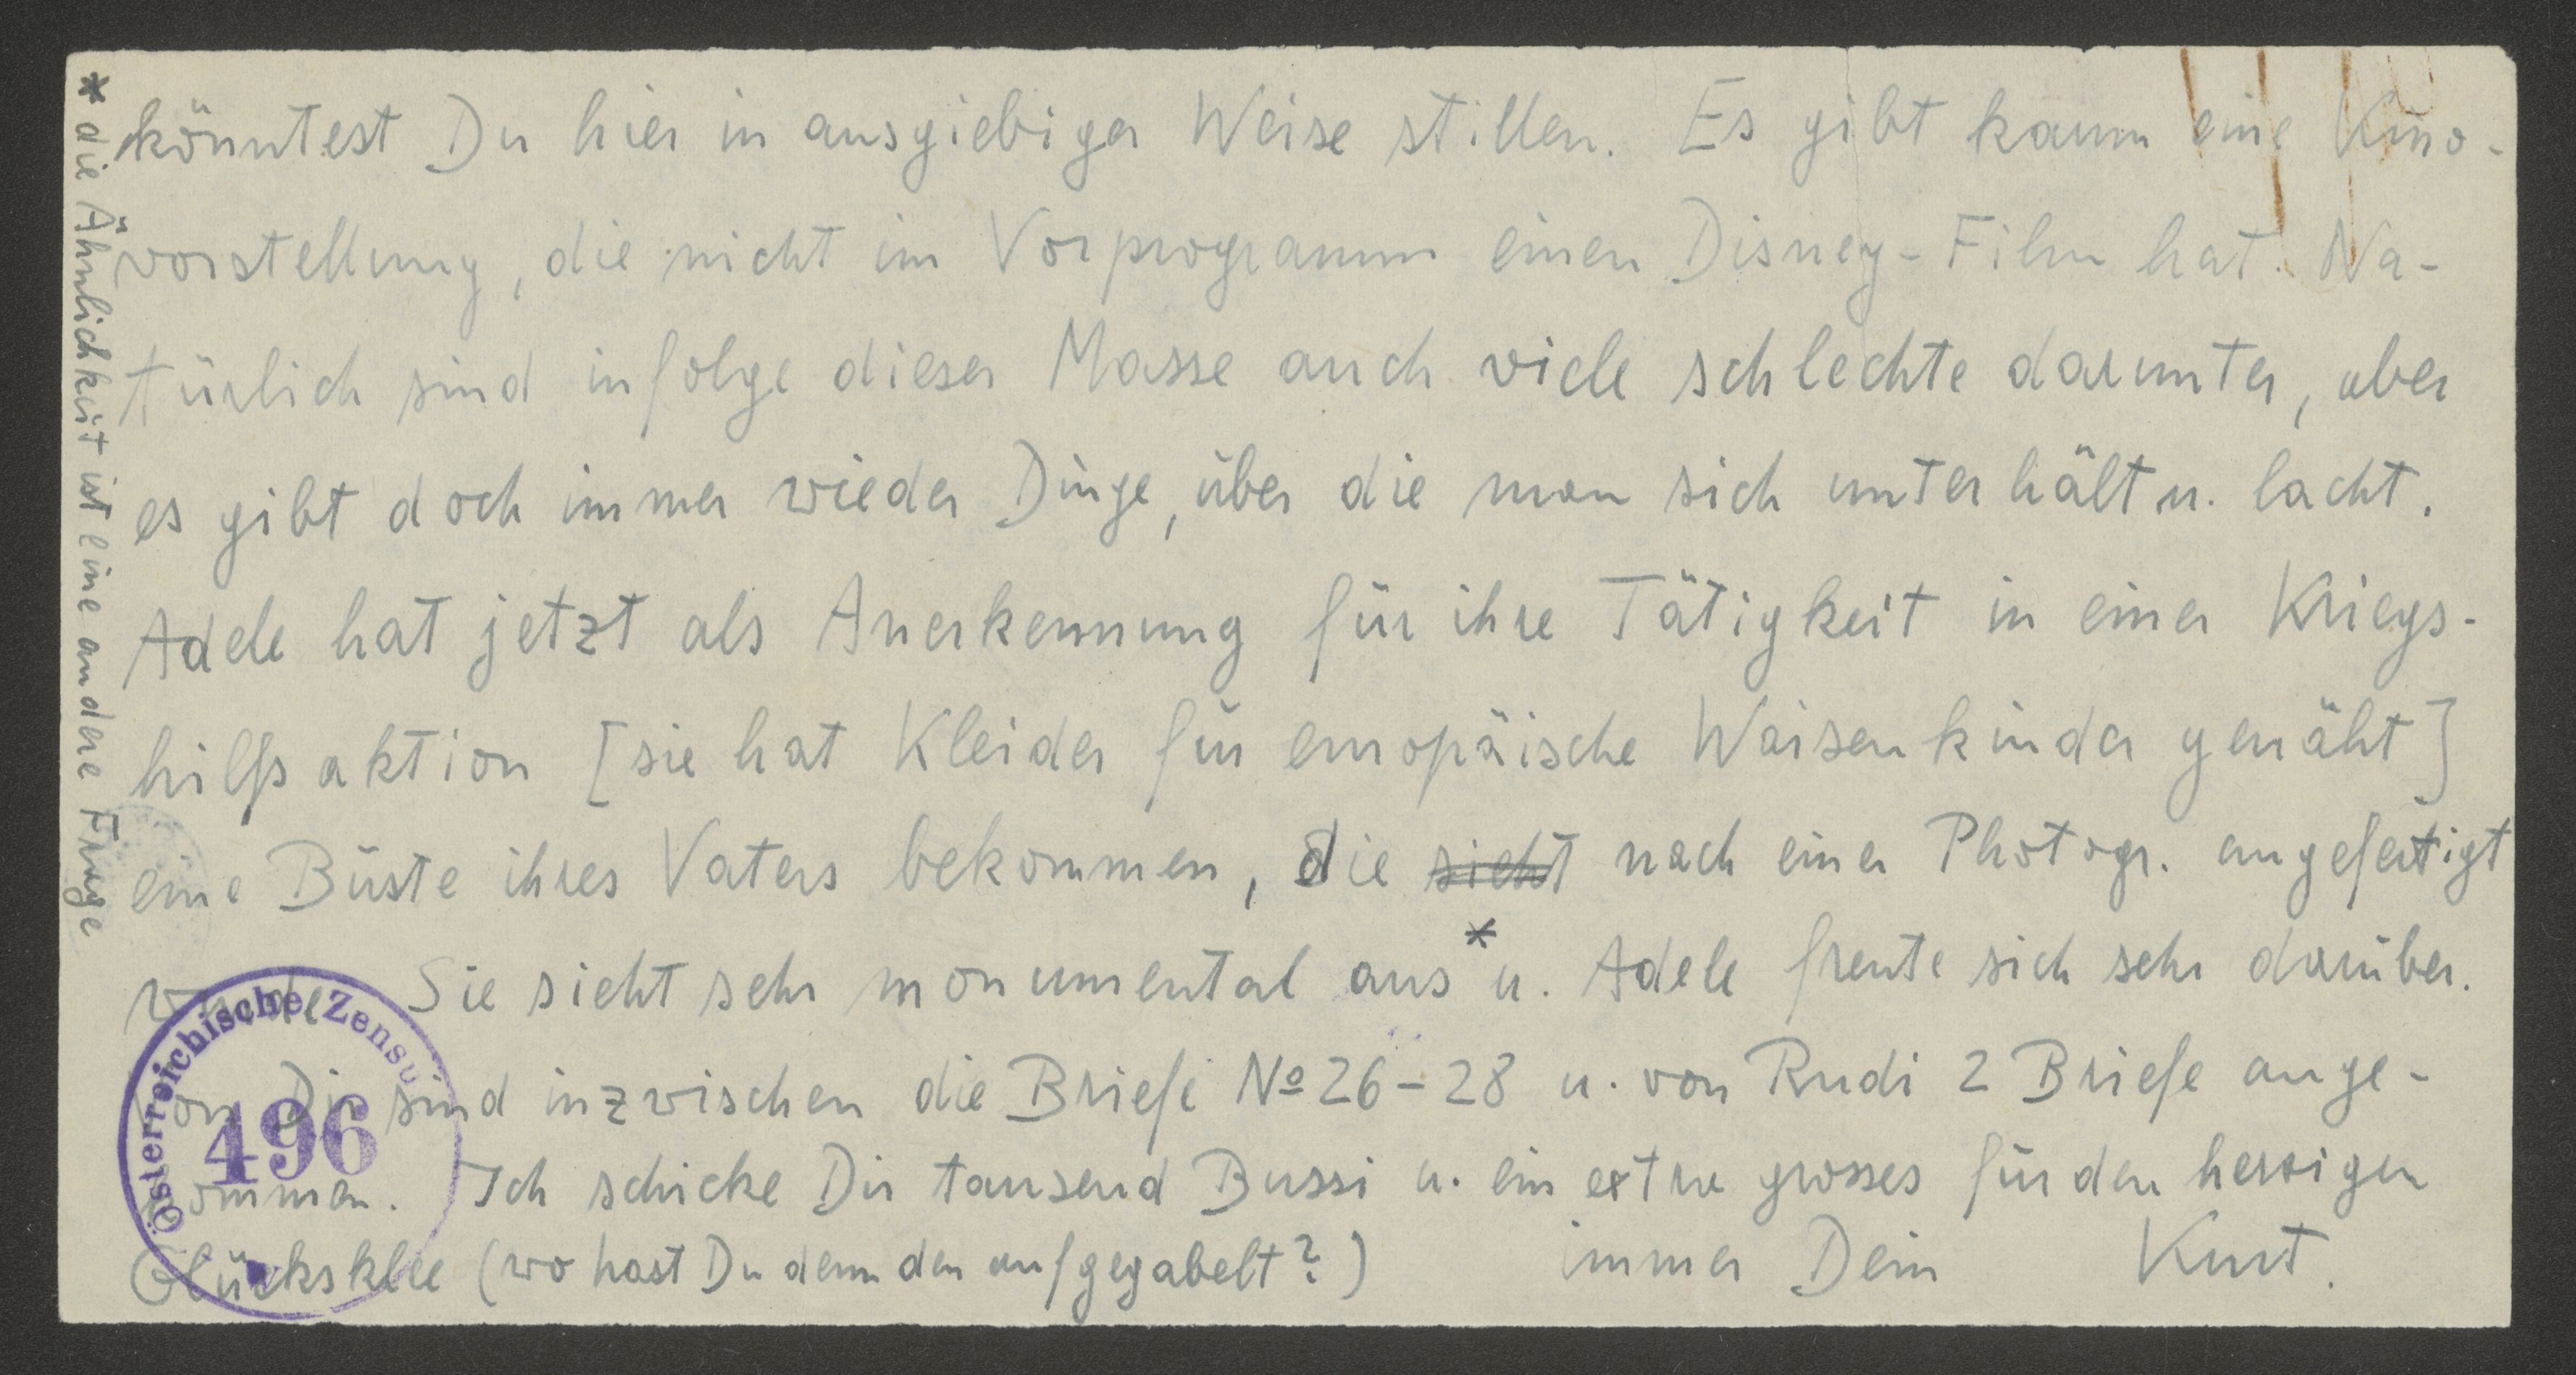 könntest Du hier in ausgiebiger Weise stillen. Es gibt kaum eine Kino-
vorstellung, die nicht im Vorprogramm einen Disney-Film hat. Na-
türlich sind infolge dieser Masse auch viele schlechte darunter, aber
es gibt doch immer wieder Dinge, über die man sich unterhält u. lacht.
Adele hat jetzt als Anerkennung für ihre Tätigkeit in einer Kriegs-
hilfsaktion [sie hat Kleider für europäische Waisenkinder genäht]
eine Büste ihres Vaters bekommen, die sieht nach einer Photogr. angefertigt
wurde. Sie sieht sehr monumental aus* u. Adele freute sich sehr darüber.
Von Dir sind inzwischen die Briefe No 26-28 u. von Rudi 2 Briefe ange-
kommen. Ich schicke Dir tausend Bussi u. ein extra grosses für den herzigen
Glücksklee (wo hast Du denn den aufgegabelt?) immer Dein Kurt.
* die Ähnlichkeit ist eine andere Frage
Österreichische Zensu
496